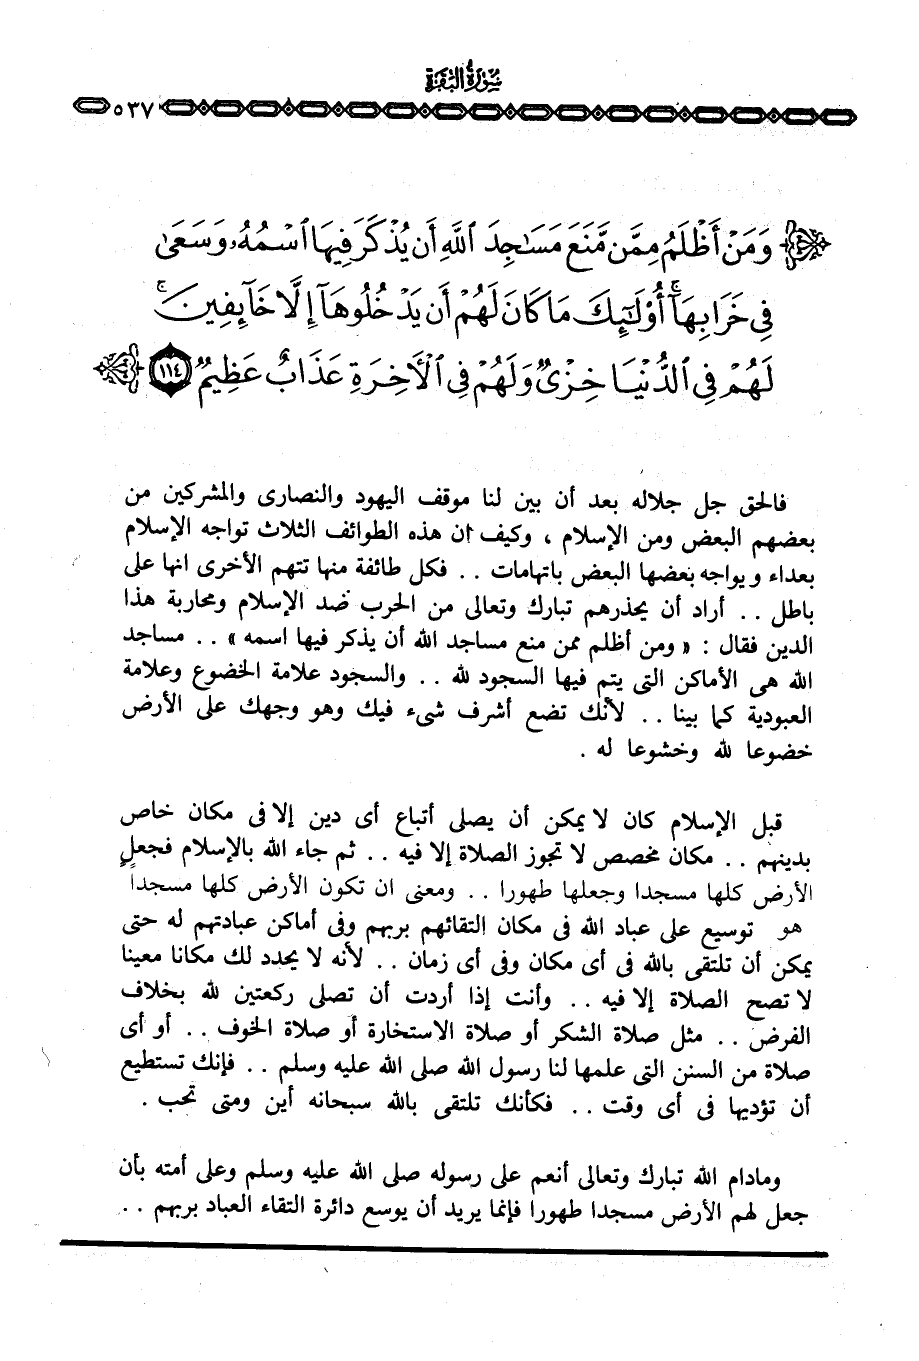 سورة البقرة
٥٣٧
وَمَنْ أَظْلَمُ مِمَّن مَّنَعَ مَسَٰجِدَ ٱللَّهِ أَن يُذْكَرَ فِيهَا ٱسْمُهُۥ وَسَعَىٰ
فِى خَرَابِهَآ ۚ أُو۟لَٰٓئِكَ مَا كَانَ لَهُمْ أَن يَدْخُلُوهَآ إِلَّا خَآئِفِينَ ۚ
لَهُمْ فِى ٱلدُّنْيَا خِزْىٌ وَلَهُمْ فِى ٱلْأَخِرَةِ عَذَابٌ عَظِيمٌ ١١٤
فالحق جل جلاله بعد أن بين لنا موقف اليهود والنصارى والمشركين من
بعضهم البعض ومن الإسلام ، وكيف ان هذه الطوائف الثلاث تواجه الإسلام
بعداء ويواجه بعضها البعض باتهامات .. فكل طائفة منها تتهم الأخرى انها على
باطل .. أراد أن يحذرهم تبارك وتعالى من الحرب ضد الإسلام ومحاربة هذا
الدين فقال : « ومن أظلم ممن منع مساجد الله أن يذكر فيها اسمه » .. مساجد
الله هى الأماكن التى يتم فيها السجود لله .. والسجود علامة الخضوع وعلامة
العبودية كما بينا .. لأنك تضع أشرف شىء فيك وهو وجهك على الأرض
خضوعا لله وخشوعا له .
قبل الإسلام كان لا يمكن أن يصلى أتباع أى دين إلا فى مكان خاص
بدينهم .. مكان مخصص لا تجوز الصلاة إلا فيه .. ثم جاء الله بالإسلام فجعل
الأرض كلها مسجدا وجعلها طهورا .. ومعنى ان تكون الأرض كلها مسجدا
هو توسيع على عباد الله فى مكان التقائهم بربهم وفى أماكن عبادتهم له حتى
يمكن أن تلتقى بالله فى أى مكان وفى أى زمان .. لأنه لا يحدد لك مكانا معينا
لا تصح الصلاة إلا فيه .. وأنت إذا أردت أن تصلى ركعتين لله بخلاف
الفرض .. مثل صلاة الشكر أو صلاة الاستخارة أو صلاة الخوف .. أو أى
صلاة من السنن التى علمها لنا رسول الله صلى الله عليه وسلم .. فإنك تستطيع
أن تؤديها فى أى وقت .. فكأنك تلتقى بالله سبحانه أين ومتى تحب .
ومادام الله تبارك وتعالى أنعم على رسوله صلى الله عليه وسلم وعلى أمته بأن
جعل لهم الأرض مسجدا طهورا فإنما يريد أن يوسع دائرة التقاء العباد بربهم ..